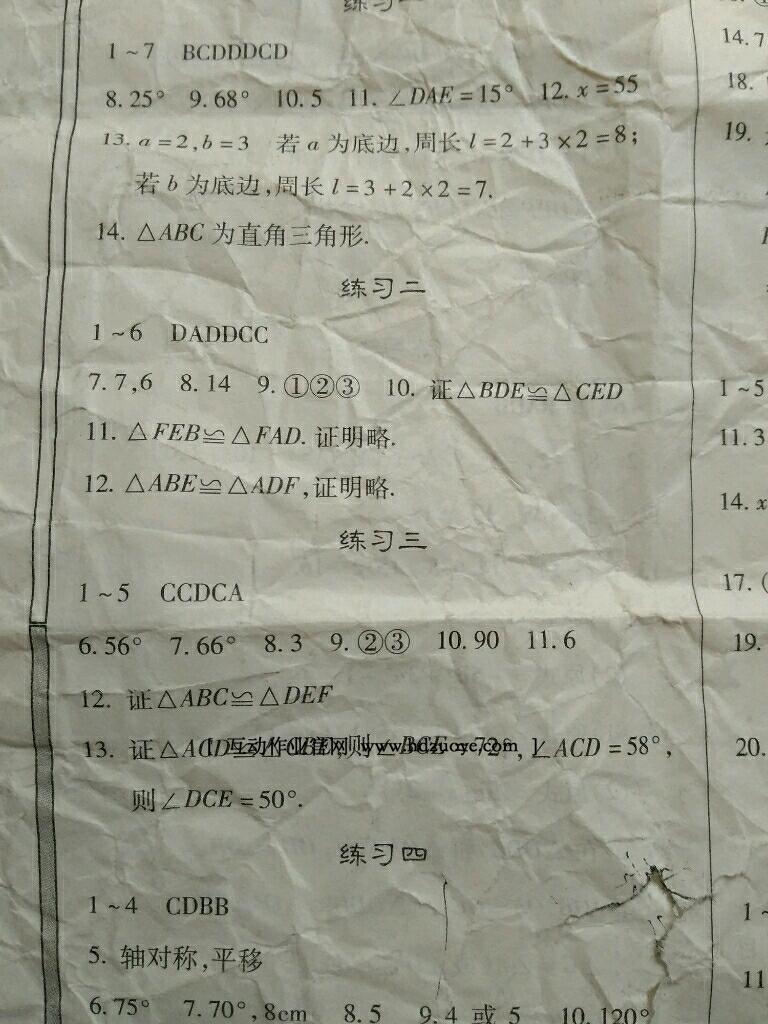 练习一
1~7 BCDDDCD
8.25° 9.68° 10.5 11.∠DAE=15° 12.x=55
13.a=2,b=3 若a为底边,周长l=2+3×2=8;
若b为底边,周长l=3+2×2=7.
14.△ABC为直角三角形.
练习二
1~6 DADDCC
7.7,6 8.14 9.①②③ 10.证△BDE≌△CED
11.△FEB≌△FAD.证明略.
12.△ABE≌△ADF,证明略.
练习三
1~5 CCDCA
6.56° 7.66° 8.3 9.②③ 10.90 11.6
12.证△ABC≌△DEF
13.证△ACD≌ 则∠BCE=72°,∠ACD=58°,
互动作业官网 www.hdzuoye.com
则∠DCE=50°.
练习四
1~4 CDBB
5.轴对称,平移
6.75° 7.70°,8cm 8.5 9.4或5 10.120°
14.7
18.
19.
1~5
11.3
14.x
17.
19.
20.
1~
11